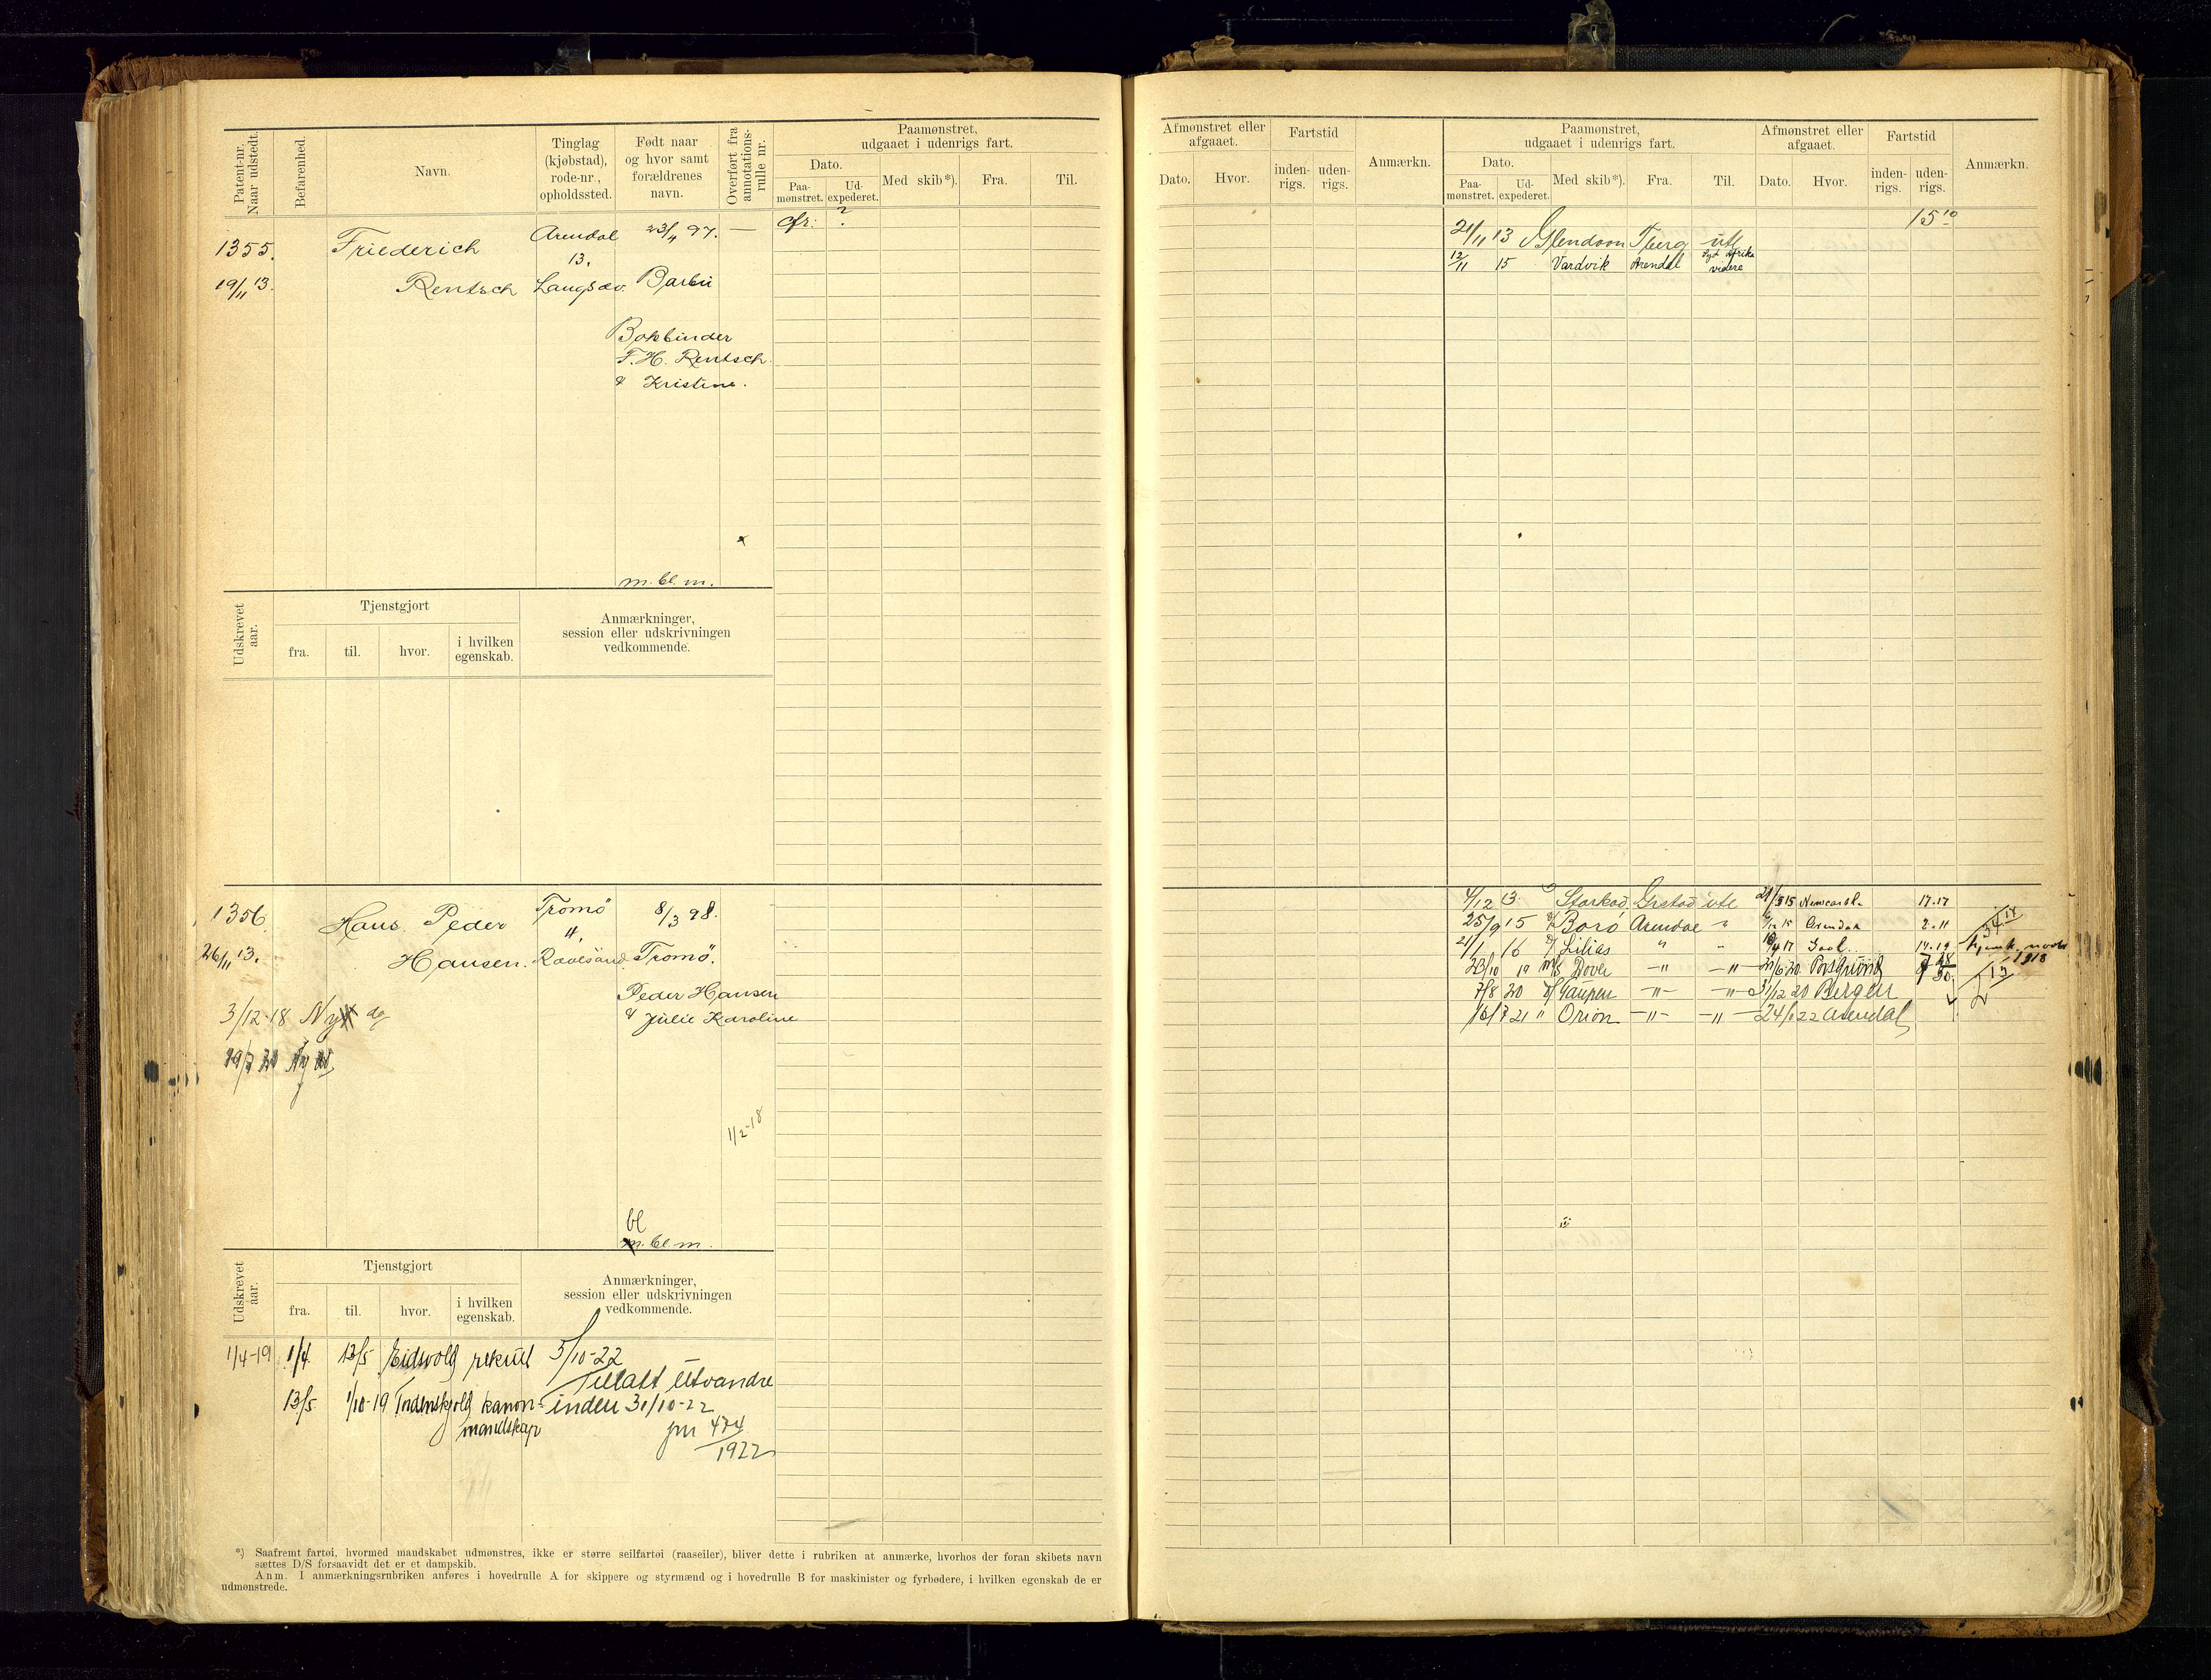 Patent-nr. Naar udstedt.
Befarenhed.
Navn.
Tinglag (kjøbstad), rode-nr., opholdssted.
Født naar og hvor samt forældrenes navn.
Overført fra annotations-rulle nr.
Paamønstret, udgaaet i udenrigs fart.
Dato.
Paa-mønstret.
Ud-expederet.
Med skib*).
Fra.
Til.
1355.
19/11 13.
Friederich
Rentsch
Arendal
13.
Langsæv.
23/4 97.
—
Barbu
Bokbinder
F. H. Rentsch
& Kristine.
m. bl. m.
cfr: ?
Udskrevet aar.
Tjenstgjort
fra.
til.
hvor.
i hvilken egenskab.
Anmærkninger, session eller udskrivningen vedkommende.
1356
26/11 13.
Hans Peder
Hansen.
Tromö
4.
Ravesand
8/3 98.
Tromö.
Peder Hansen
& Julie Karoline
3/12-18 Ny do
1/2-18
bl
m. bl m.
Udskrevet aar.
Tjenstgjort
fra.
til.
hvor.
i hvilken egenskab.
Anmærkninger, session eller udskrivningen vedkommende.
1/4-19 1/4 13/5 Eidsvold rekrut
13/5 1/10-19 Tordenskjold kanon-
mandskap
5/10-22
Tillatt utvandre
inden 31/10-22
jnr 474
1922
*) Saafremt fartøi, hvormed mandskabet udmønstres, ikke er større seilfartøi (raaseiler), bliver dette i rubriken at anmærke, hvorhos der foran skibets navn
sættes D/S forsaavidt det er et dampskib.
Anm. I anmærkningsrubriken anføres i hovedrulle A for skippere og styrmænd og i hovedrulle B for maskinister og fyrbødere, i hvilken egenskab de er
udmønstrede.
Afmønstret eller afgaaet.
Dato.
Hvor.
Fartstid
inden-rigs.
uden-rigs.
Anmærkn.
Paamønstret, udgaaet i udenrigs fart.
Dato.
Paa-mønstret.
Ud-expederet.
Med skib*).
Fra.
Til.
Afmønstret eller afgaaet.
Dato.
Hvor.
Fartstid
inden-rigs.
uden-rigs.
Anmærkn.
15 10
21/11 13 Glendoon Tberg ute
12/11 15 Vardvik Arendal Syd Afrika
videre
4/12 13 Storkod Grstad ute 15 Newcastle 17.17
25/9 15 Boro Arendal " 15 Arendal 2.11
21/1 16 Lilias " " 17 Goole 14.19
1918
23/10 19 M/S Dovre —"— —"— 20 Porsgrund
7/8 20 Gaupen —"— —"— 31/12 20 Bergen
21 " Orion —"— —"— 22 Arendal